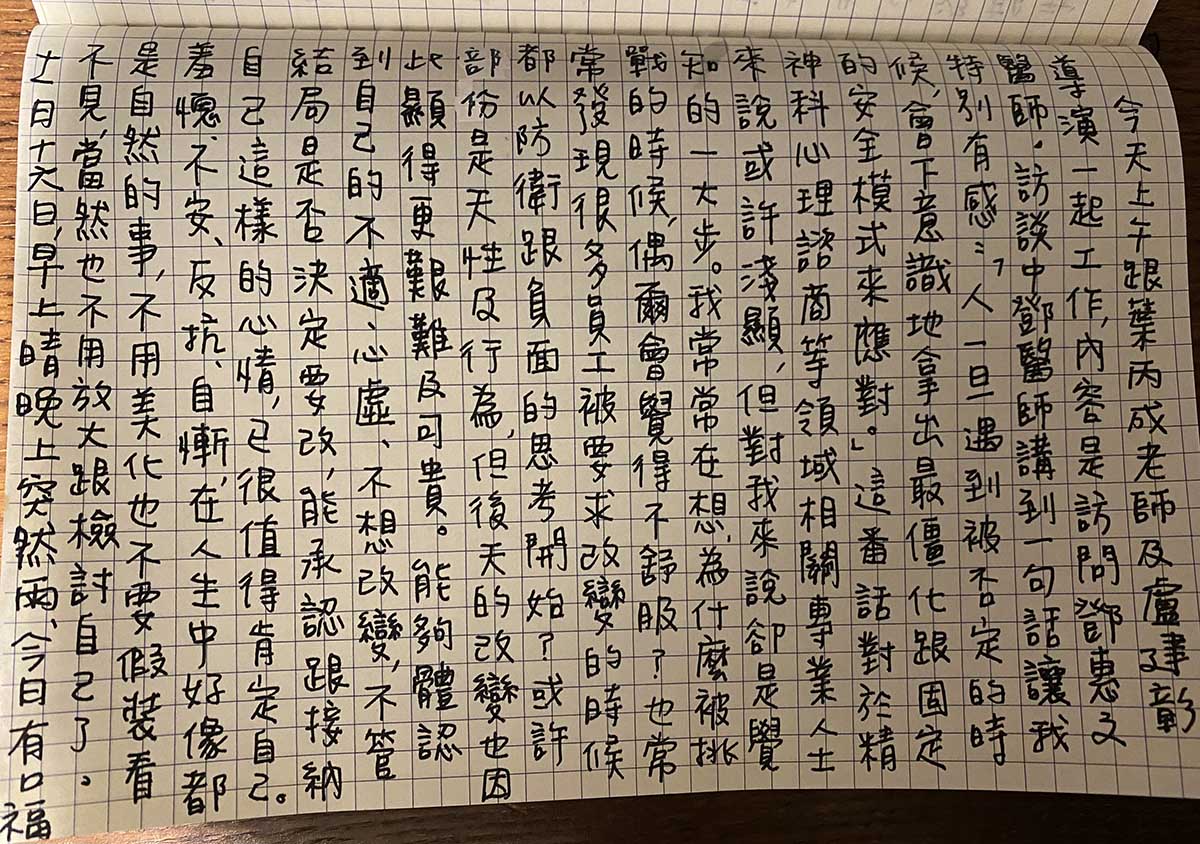 今天上午跟葉丙成老師及盧建彰
導演一起工作,內容是訪問鄧惠文
醫師。訪談中鄧醫師講到一句話讓我
特別有感:「人一旦遇到被否定的時
候,會下意識地拿出最僵化跟固定
的安全模式來應對。」這番話對於精
神科心理諮商等領域相關專業人士
來說或許淺顯,但對我來說卻是覺
知的一大步。我常常在想,為什麼被挑
戰的時候,偶爾會覺得不舒服?也常
常發現很多員工被要求改變的時候
都以防衛跟負面的思考開始?或許
部份是天性及行為,但後天的改變也因
此顯得更艱難及可貴。能夠體認
到自己的不適、心虛、不想改變,不管
結局是否決定要改,能承認跟接納
自己這樣的心情,已很值得肯定自己。
羞愧、不安、反抗、自慚,在人生中好像都
是自然的事,不用美化也不要假裝看
不見,當然也不用放大跟檢討自己了。
十一月十六日,早上晴晚上突然雨、今日有口福